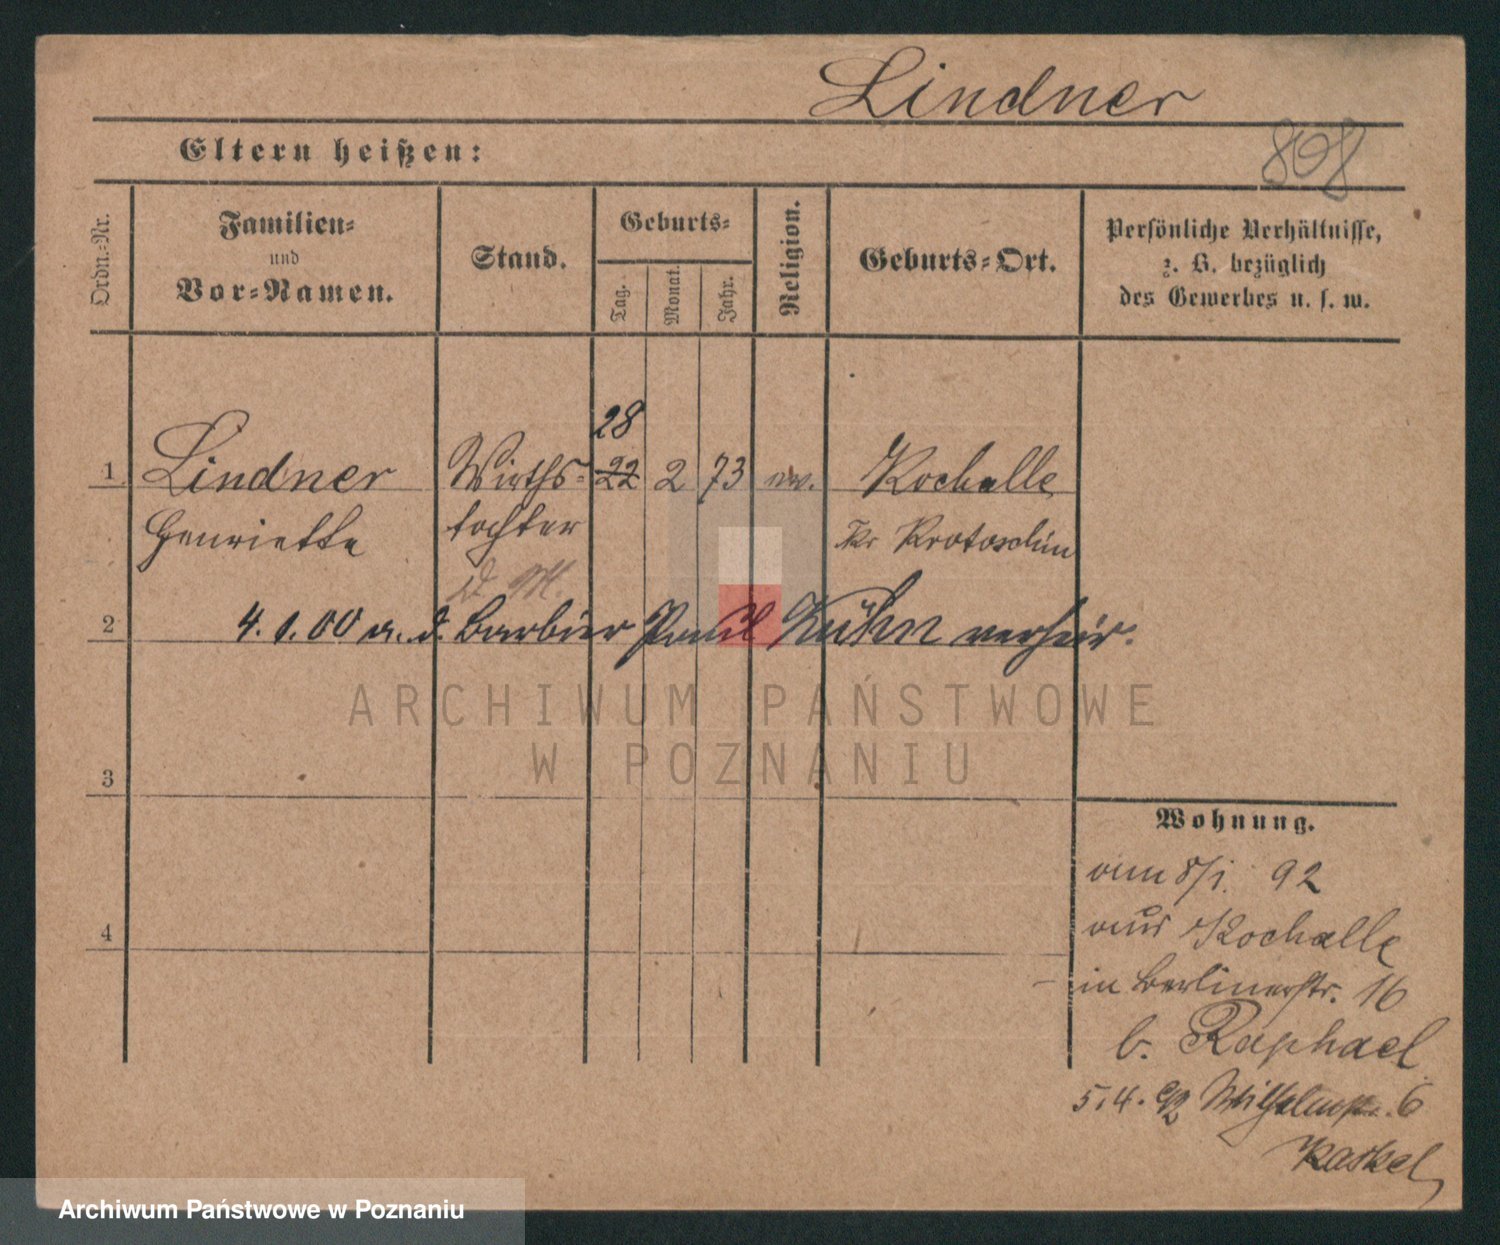 Lindner
808
Eltern heißen:
Ordn.-Nr.
Familien-
und
Vor-Namen.
Stand.
Geburts-
Tag.
Monat.
Jahr.
Religion.
Geburts-Ort.
Persönliche Verhältnisse,
z. B. bezüglich
des Gewerbes u. s. w.
28
1 Lindner Wirths- 22 2 73 ev. Kochalle
Henriette tochter Kr Krotoschin
D. M.
2 4.1.00 a. d. Barbier Paul Kühn verheir.
ARCHIWUM PAŃSTWOWE
W POZNANIU
3
Wohnung.
vom 8/1. 92
aus Kochalle
4
in Berlinerstr. 16
b. Raphael
5.4. 92 Wilhelmspl. 6
Kaskel
Archiwum Państwowe w Poznaniu